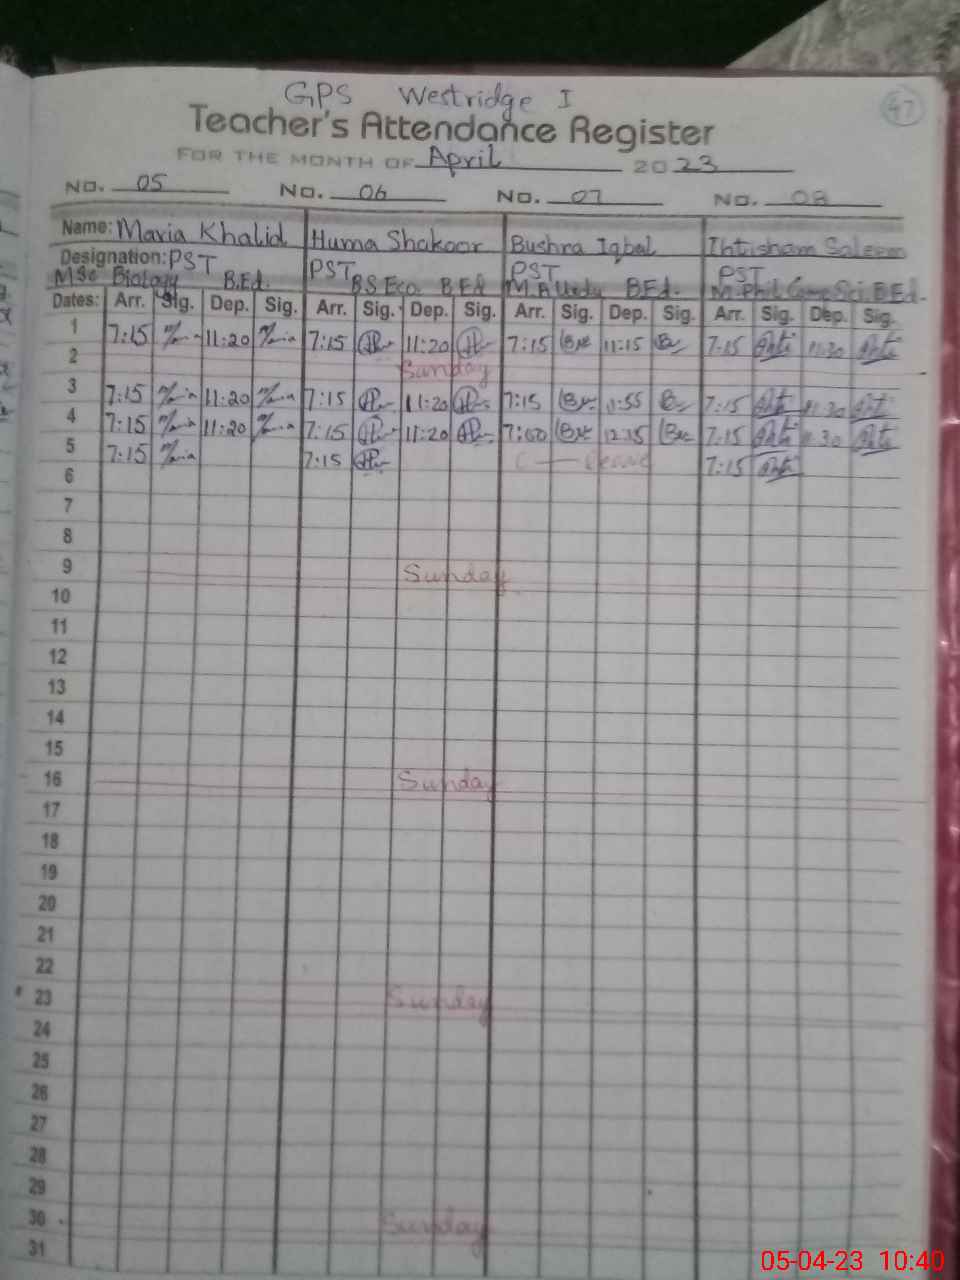 GPS Westridge I
47
Teacher's Attendance Register
FOR THE MONTH OF April 2023
No. 05 No. 06 No. 07 No. 08
Name: Maria Khalid Huma Shakoor Bushra Iqbal Ihtisham Saleem
Designation: PST PST PST PST
MSc Biology B.Ed. BS Eco. B.Ed M.A Urdu B.Ed. M.Phil Comp Sci. B.Ed.
Dates: Arr. Sig. Dep. Sig. Arr. Sig. Dep. Sig. Arr. Sig. Dep. Sig. Arr. Sig. Dep. Sig.
1 7:15 11:20 7:15 11:20 7:15 11:15 7:15 11:30
2 Sunday
3 7:15 11:20 7:15 11:20 7:15 11:55 7:15 11:30
4 7:15 11:20 7:15 11:20 7:00 12:15 7:15 11:30
5 7:15 7:15 C — Leave 7:15
6
7
8
9 Sunday
10
11
12
13
14
15
16 Sunday
17
18
19
20
21
22
23 Sunday
24
25
26
27
28
29
30 Sunday
31
05-04-23 10:40